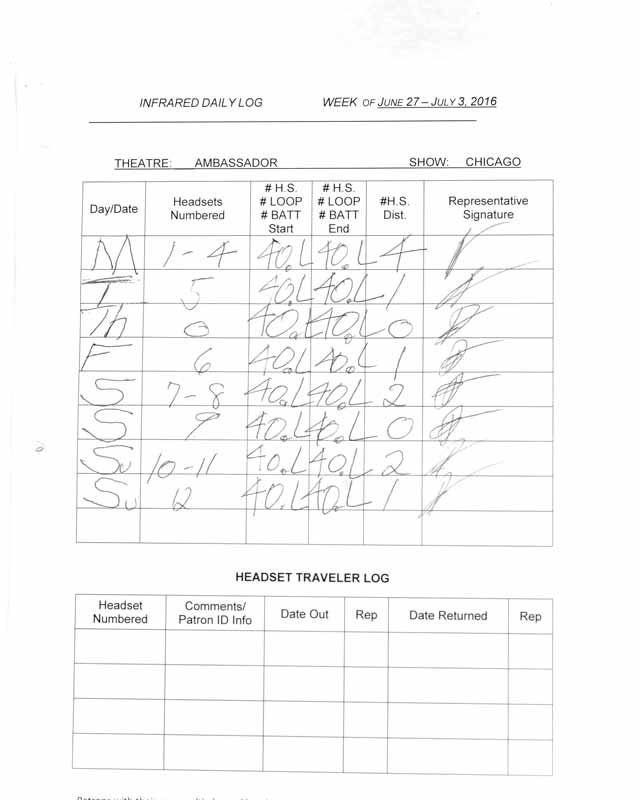 INFRARED DAILY LOG WEEK OF JUNE 27 – JULY 3, 2016
THEATRE: AMBASSADOR SHOW: CHICAGO
Day/Date Headsets Numbered # H.S. # LOOP # BATT Start # H.S. # LOOP # BATT End #H.S. Dist. Representative Signature
M 1-4 40.L 40.L 4
T 5 40.L 40.L 1
Th 0 40.L 40.L 0
F 6 40.L 40.L 1
S 7-8 40.L 40.L 2
S 9 40.L 40.L 0
Su 10-11 40.L 40.L 2
Su 12 40.L 40.L 1
HEADSET TRAVELER LOG
Headset Numbered Comments/ Patron ID Info Date Out Rep Date Returned Rep